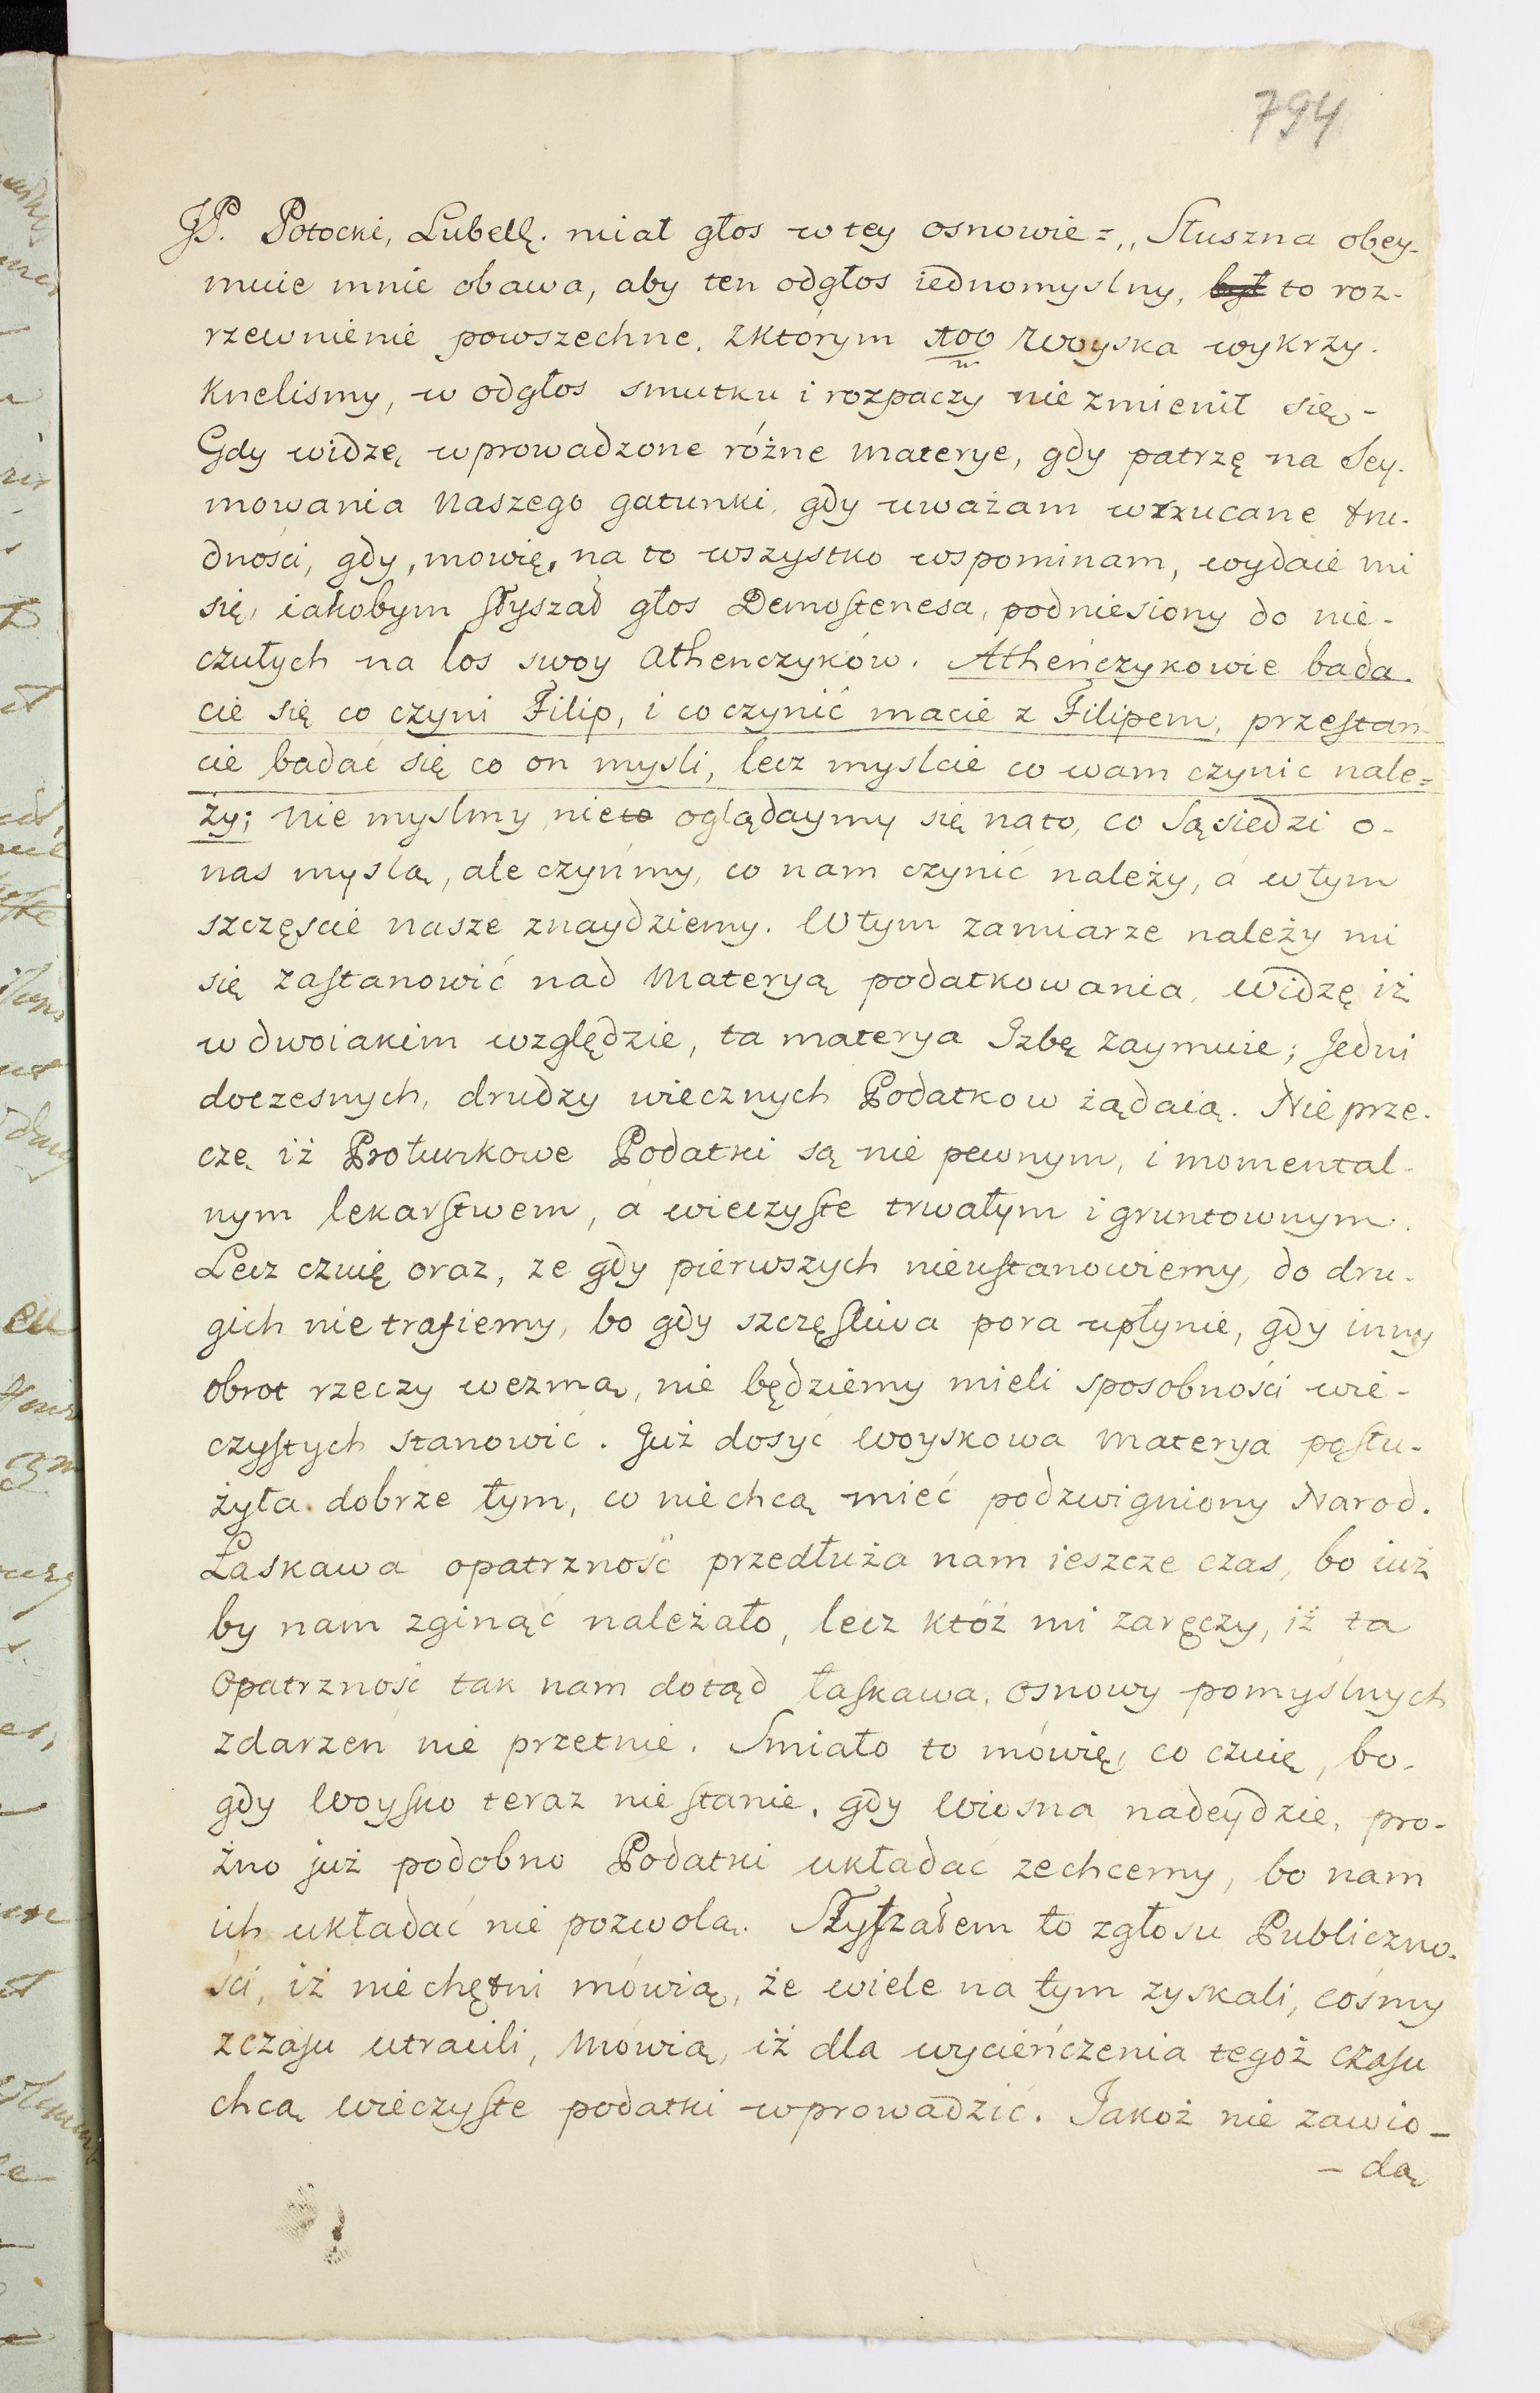 794
JP. Potocki, Lubelſ. miał głos w tey osnowie =,, Słuszna obey-
muie mnie obawa, aby ten odgłos iednomyslny, był to roz-
rzewnienie powszechne. z którym 100/m woyska wykrzy-
knelismy, w odgłos smutku i rozpaczy nie zmienił się -
Gdy widzę wprowadzone różne materye, gdy patrzę na Sey-
mowania naszego gatunki, gdy uważam wrzucane tru-
dności, gdy, mowię, na to wszystko wspominam, wydaie mi
się, iakobym słyszał głos Demostenesa, podniesiony do nie-
czułych na los swoy Athenczyków. Atheńczykowie bada-
cie się co czyni Filip, i co czynić macie z Filipem, przestań-
cie badać się co on mysli, lecz myslcie co wam czynic nale=
ży; nie myslmy, nie oglądaymy się na to, co Sąsiedzi o-
nas myslą, ale czyńmy, co nam czynić należy, á w tym
szczęscie nasze znaydziemy. W tym zamiarze należy mi
się zastanowić nad materyą podatkowania, widzę iż
w dwoiakim względzie, ta materya Izbę zaymuie; Jedni
doczesnych, drudzy wiecznych Podatkow żądaią. Nie prze-
czę iż Protunkowe Podatki są nie pewnym, i momental-
nym lekarstwem, á wieczyste trwałym i gruntownym.
Lecz czuię oraz, ze gdy pierwszych nieustanowiemy, do dru-
gich nie trafiemy, bo gdy szczęsliwa pora upłynie, gdy inny
obrot rzeczy wezmą, nie będziemy mieli sposobności wie-
czystych stanowić. Już dosyć woyskowa materya posłu-
żyła dobrze tym, co niechcą mieć podzwigniony Narod.
Łaskawa opatrzność przedłuża nam ieszcze czas, bo iuż
by nam zginąć należało, lecz któż mi zaręczy, iż ta
Opatrzność tak nam dotąd łaskawa, osnowy pomyślnych
zdarzeń nie przetnie. Smiało to mówię, co czuię, bo-
gdy Woysko teraz nie stanie, gdy Wiosna nadeydzie, pro-
żno już podobno Podatki układać zechcemy, bo nam
ich układać nie pozwolą. Słyszałem to z głosu Publiczno-
ści, iż niechętni mówią, że wiele na tym zyskali, cośmy
z czasu utracili, Mówią, iż dla wycieńczenia tegoż czasu
chcą wieczyste podatki wprowadzić. Jakoż nie zawio-
- dą